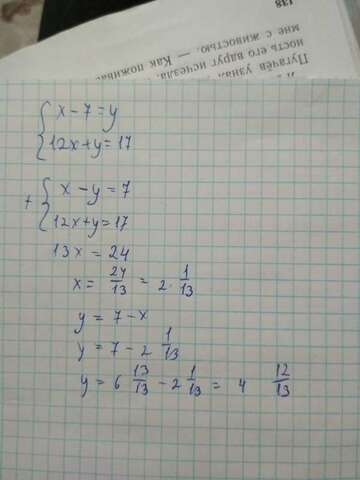 Пугачёв узнал
ность его вдруг исчезла.
мне с живостью. — Как пожива
138
x - 7 = y
12x + y = 17
+
x - y = 7
12x + y = 17
13x = 24
x = 24/13 = 2 1/13
y = 7 - x
y = 7 - 2 1/13
y = 6 13/13 - 2 1/13 = 4 12/13